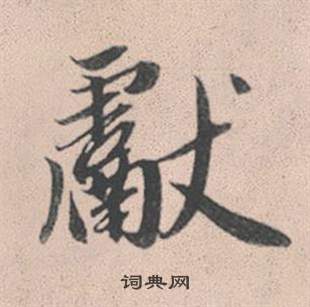 獻
词典网